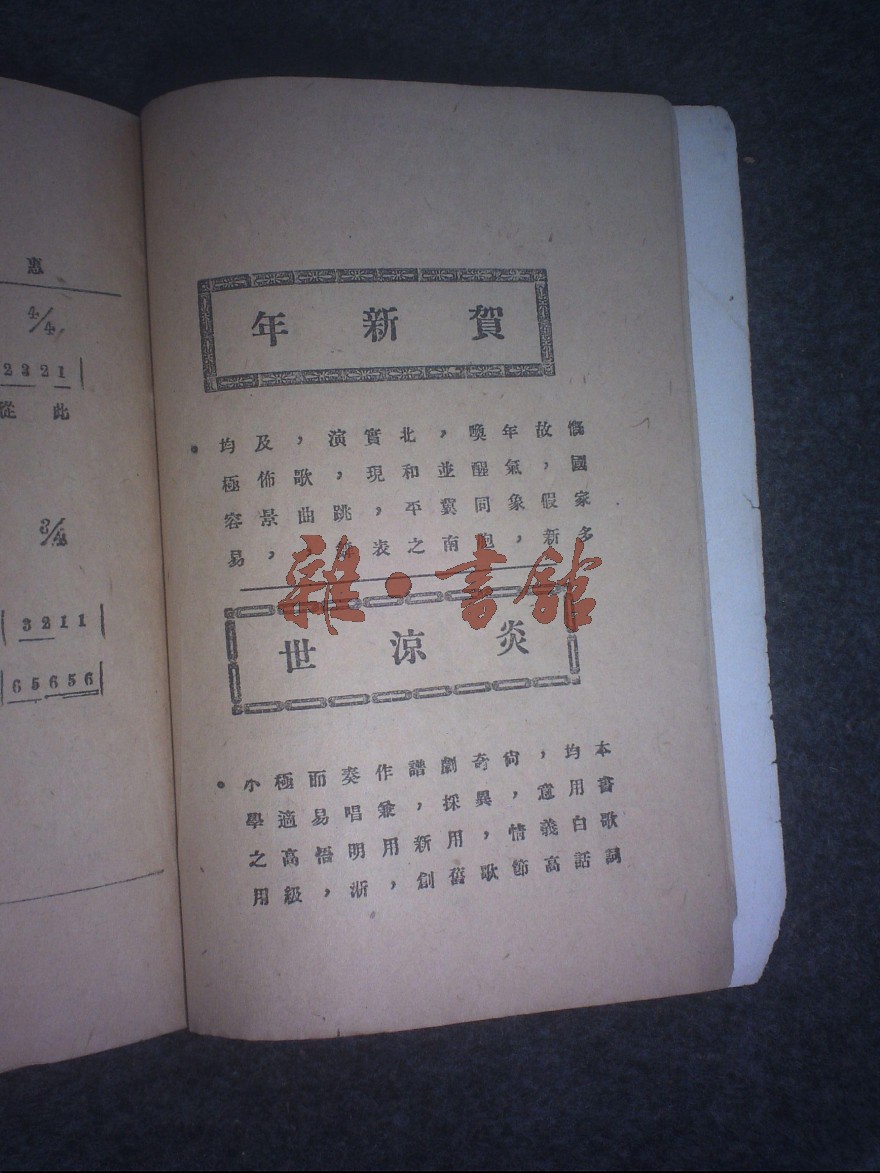 賀新年
慨國家多
故，假新
年氣象，
喚醒同胞
，並冀南
北和平之
實現，表
演，跳舞
，歌曲
及佈景，
均極容易
。
炎涼世
本書歌詞
均用白話
，意義高
尙，情節
奇異，歌
劇採用舊
譜，新創
作兼用，
奏唱明淅
而易悟，
極適高級
小學之用
。
惠
4/4
2 3 2 1 |
從 此
3/4
| 3 2 1 1 |
| 6 5 6 5 6 |
雜·書館